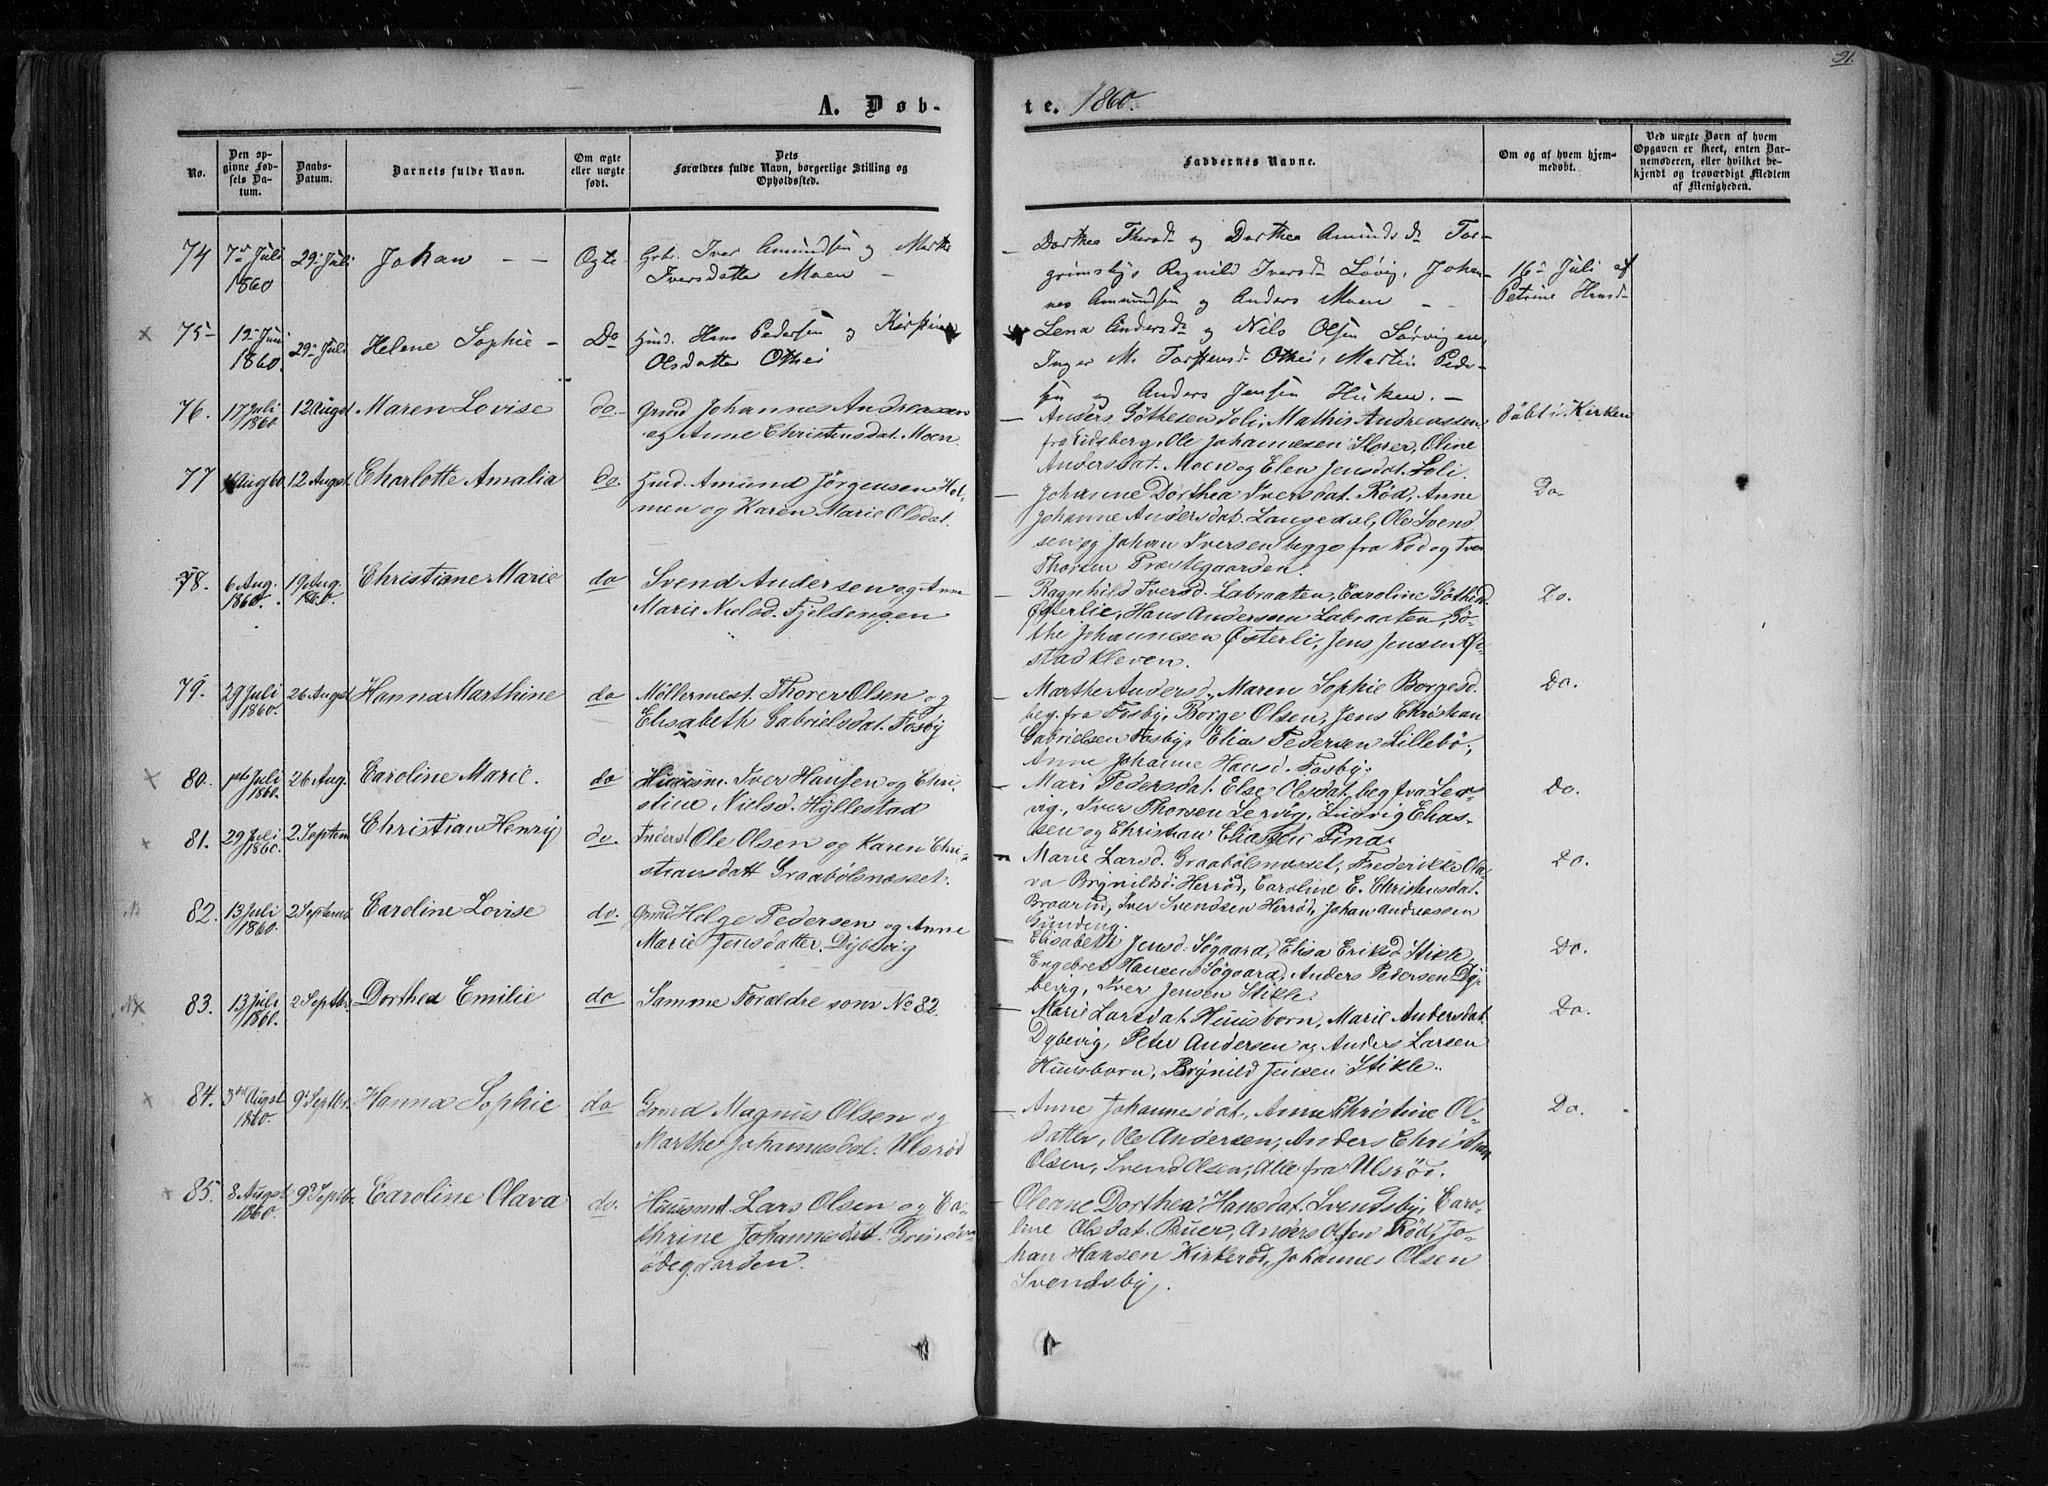 31.
A. Døb-
te. 1860.
No.
Den op-
givne Fød-
sels Da-
tum.
Daabs-
Datum.
Barnets fulde Navn.
Om ægte
eller uægte
født.
Dets
Forældres fulde Navn, borgerlige Stilling og
Opholdssted.
Faddernes Navne.
Om og af hvem hjem-
medøbt.
Ved uægte Børn af hvem
Opgaven er skeet, enten Bar-
nemoderen, eller hvilket be-
kjendt og troværdigt Medlem
af Menigheden.
74
7de Juli
1860
29. Juli
Johan - -
Ægte
Iver Amundsen og Marthe
Iversdatter Moen -
- Dorthea Thorsd og Dorthea Amundsd Tor-
grimsby, Ragnild Iversd Løvig, Johan-
nes Amundsen og Anders Moen - -
16de Juli af
Petrine Hansd
75
12 Juni
1860.
29. Juli
Helene Sophie -
Do
Husd. Hans Pedersen og Kirstine
Olsdatter Othei
Lena Andersd og Nils Olsen Sørvigen,
Inger M. Torstensd Othei, Martin Peder-
sen og Anders Jensen Huken. -
76.
17 Juli
1860.
12 August
Maren Lovise
do
Grmd Johannes Andreassen
og Anne Christensdat. Moen.
- Anders Gøthesen Loli, Mathis Andreassen
fra Eidsberg, Ole Johannesen Floser, Oline
Andersdat. Moen og Elen Jensdat. Loli.
Døbt i Kirken
77
Aug 60
12 Augst.
Charlotte Amalia
do.
Husd. Amund Jørgensen Hol-
men og Karen Marie Olsdat.
- Johanne Dorthea Iversdat. Rød, Anne
Johanne Andersdat. Langedal, Ole Svend
sen og Johan Iversen begge fra Rød og Iver
Thorsen Præstegaarden.
Do.
78.
6 Aug.
1860.
19 Aug.
1860.
Christiane Marie
do
Svend Andersen og Anne
Marie Nielsd. Fjelsengen
- Ragnhild Iversd. Labraaten, Caroline Gøthesd.
Østerlie, Hans Andersen Labraaten, Gø-
the Johannesen Østerli, Jens Jensen Ø-
stadkleven.
Do.
79.
29 Juli
1860.
26 Augst
Hanna Marthine
do
Møllermest. Thorer Olsen og
Elisabeth Gabrielsdat. Fosby
- Marthe Andersd., Maren Sophie Borgesd.
beg. fra Fosby, Borge Olsen, Jens Christian
Gabrielsen Fosby, Elias Pedersen Lillebö,
Anne Johanne Hansd. Fosby.
Do.
80.
1ste Juli
1860.
26 Aug.
Caroline Marie.
do
Huusm. Iver Hansen og Chri-
stine Nielsd. Hyllestad
- Mari Pedersdat. Else Olsdat. beg fra Ler-
vig, Iver Thorsen Lervig, Ludvig Elias-
sen og Christian Eliassen Pina.
Do.
81.
29 Juli
1860.
2 Septem
Christian Henry
do.
Inderst Ole Olsen og Karen Chri-
stiansdatt Graabölsnæsset.
- Marie Larsd. Graabölsnæsset, Frederikke Ola-
va Brynildsd. Herröd, Caroline E. Christensdat.
Braarud, Iver Svendsen Herröd, Johan Andreassen
Gunding.
Do.
82.
13 Juli
1860.
2 Septemb.
Caroline Lovise
do.
Grmd Helge Pedersen og Anne
Marie Jensdatter. Dybevig
Elisabeth Jensd. Søgaard, Elisa Eriksd Stikle,
Engebret Hansen Søgaard, Anders Pedersen Dy-
bevig, Iver Jensen Stikle.
Do.
83.
13 Juli
1860.
2 Septbr.
Dorthea Emilie
do
Samme Forældre som No 82.
- Marie Larsdat. Huusborn, Marie Andersdat.
Dybevig, Peter Andersen og Anders Larsen
Huusborn, Brynild Jensen Stikle.
Do.
84.
3die Augst
1860.
9 Septbr.
Hanna Sophie
do
Grmd Magnus Olsen og
Marthe Johannesdat. Ulsröd
- Anne Johannesdat., Anne Christine Ol-
datter, Ole Andersen, Anders Christian
Olsen, Svend Olsen, Alle fra Ulsröd.
Do.
85.
8 Augst
1860.
9 Septbr.
Caroline Olava
do.
Huusmd. Lars Olsen og Ca-
thrine Johannesdat. Grinder-
ødegaarden.
- Oleane Dorthea Hansdat. Svendsby, Caro-
line Olsdat. Buer, Anders Olsen Rød, Jo-
han Hansen Kirkeröd, Johannes Olsen
Svendsby.